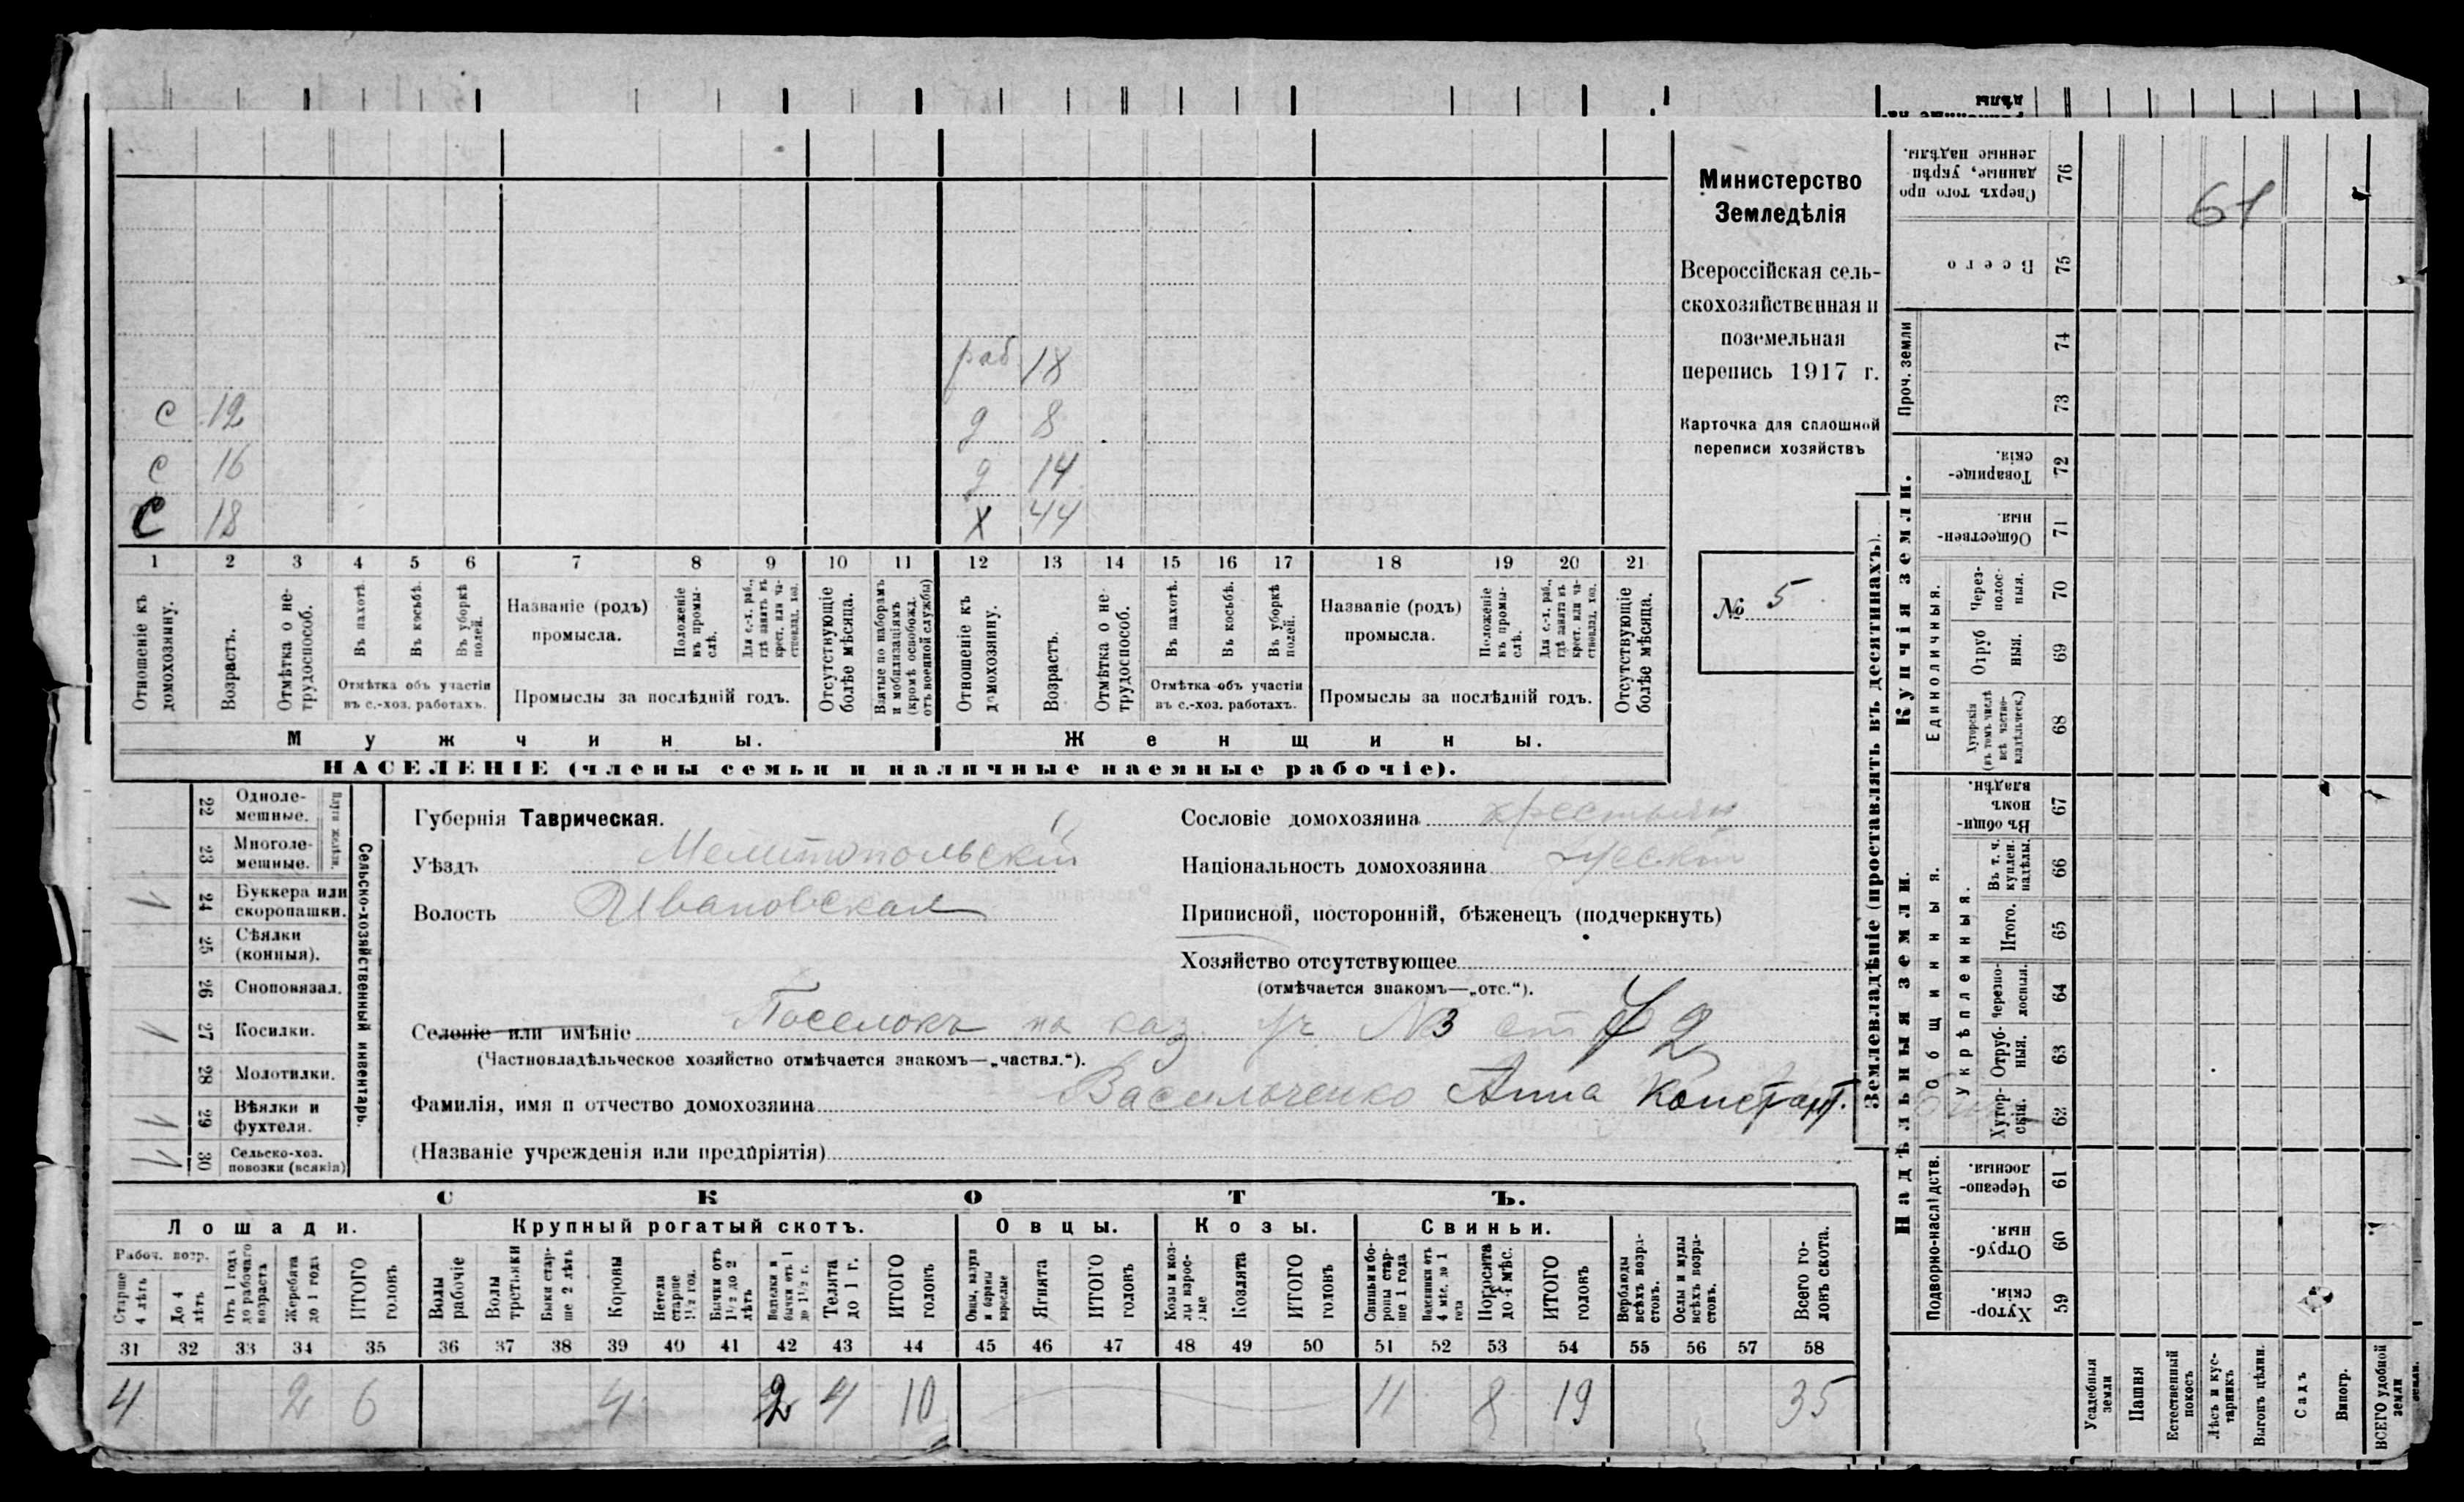 дѣлы
Министерство
Земледѣлія
Всероссійская сель-
скохозяйственная и
поземельная
перепись 1917 г.
Карточка для сплошной
переписи хозяйствъ
№ 5
61
раб 18
с 12 д 8
с 16 д 14
С 18 х 44
1 2 3 4 5 6 7 8 9 10 11 12 13 14 15 16 17 18 19 20 21
Отношеніе къ домохозяину.
Возрастъ.
Отмѣтка о не-
трудоспособ.
Въ пахотѣ.
Въ косьбѣ.
Въ уборкѣ
полей.
Отмѣтка объ участіи
въ с.-хоз. работахъ.
Названіе (родъ)
промысла.
Положеніе
въ промы-
слѣ.
Для с.-х. раб.,
гдѣ занятъ въ
крест. или ча-
стновлад. хоз.
Промыслы за послѣдній годъ.
Отсутствующіе
болѣе мѣсяца.
Взятые по наборамъ
и мобилизаціямъ
(кромѣ освобожд.
отъ военной службы)
Отношеніе къ
домохозяину.
Возрастъ.
Отмѣтка о не-
трудоспособ.
Въ пахотѣ.
Въ косьбѣ.
Въ уборкѣ
полей.
Отмѣтка объ участіи
въ с.-хоз. работахъ.
Названіе (родъ)
промысла.
Положеніе
въ промы-
слѣ.
Для с.-х. раб.,
гдѣ занятъ въ
крест. или ча-
стновлад. хоз.
Промыслы за послѣдній годъ.
Отсутствующіе
болѣе мѣсяца.
Мужчины.
Женщины.
НАСЕЛЕНІЕ (члены семьи и наличные наемные рабочіе).
Сельско-хозяйственный инвентарь.
22 Одноле-
мешные.
23 Многоле-
мешные.
24 Буккера или
скоропашки.
1
25 Сѣялки
(конныя).
26 Сноповязал.
27 Косилки.
1
28 Молотилки.
29 Вѣялки и
фухтеля.
1
30 Сельско-хоз.
повозки (всякія)
Губернія Таврическая.
Уѣздъ Мелитопольскій
Волость Ивановская
Селеніе или имѣніе Поселокъ на каз. уч. №3
(Частновладѣльческое хозяйство отмѣчается знакомъ—„частвл.“).
Фамилія, имя и отчество домохозяина Васильченко Анна Констант.
(Названіе учрежденія или предпріятія)
Сословіе домохозяина крестьян
Національность домохозяина
Приписной, посторонній, бѣженецъ (подчеркнуть)
Хозяйство отсутствующее
(отмѣчается знакомъ—„отс.“).
СКОТЪ.
Лошади. Крупный рогатый скотъ. Овцы. Козы. Свиньи.
Рабоч. возр.
Старше
4 лѣтъ
До 4
лѣтъ
Отъ 1 года
до рабочаго
возраста
Жеребята
до 1 года
ИТОГО
головъ
Волы
рабочіе
Волы
третьяки
Быки стар-
ше 2 лѣтъ
Коровы
Нетели
старше
1½ год.
Бычки отъ
1½ до 2
лѣтъ
Нетельки и
бычки отъ 1
до 1½ г.
Телята
до 1 г.
ИТОГО
головъ
Овцы, валухи
и бараны
взрослые
Ягнята
ИТОГО
головъ
Козы и коз-
лы взрос-
лые
Козлята
ИТОГО
головъ
Свиньи и бо-
ровы стар-
ше 1 года
Подсвинки отъ
4 мѣс. до 1
года
Поросята
до 4 мѣс.
ИТОГО
головъ
Верблюды
всѣхъ возра-
стовъ.
Ослы и мулы
всѣхъ возра-
стовъ.
Всего го-
ловъ скота.
31 32 33 34 35 36 37 38 39 40 41 42 43 44 45 46 47 48 49 50 51 52 53 54 55 56 57 58
4 2 6 4 2 4 10 11 8 19 35
Землевладѣніе (проставлять въ десятинахъ).
Сверхъ того про
данные, укрѣп
ленные надѣлы.
76
Всего
75
Проч. земли
74
73
Купчія земли.
Товарище-
скія.
72
Обществен-
ныя.
71
Единоличныя.
Через-
полос-
ныя.
70
Отруб
ныя.
69
Хуторскія
(въ томъ числѣ
всѣ частно-
владѣльческ.)
68
Надѣльныя земли.
Общинныя.
Въ общи-
номъ
владѣн.
67
Укрѣпленныя.
Въ т. ч.
куплен.
надѣлы.
66
Итого.
65
Черезпо-
лосныя.
64
Отруб-
ныя.
63
Хутор-
скія.
62
Подворно-наслѣдств.
Черезпо-
лосныя.
61
Отруб-
ныя.
60
Хутор-
скія.
59
Усадебныя
земли
Пашня
Естественный
покосъ
Лѣсъ и кус-
тарникъ
Выгонъ цѣлин.
Садъ
Виногр.
ВСЕГО удобной
земли